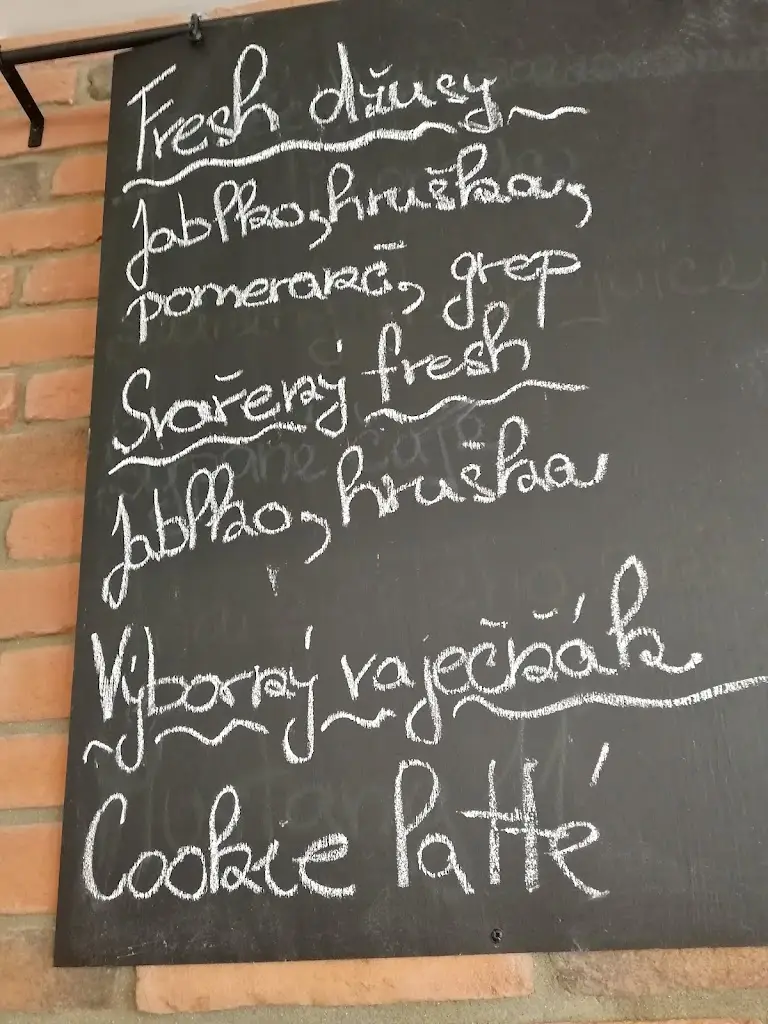 Fresh džusy
Jablko, hruška,
pomeranč, grep
Svařený fresh
Jablko, hruška
Výborný vaječňák
Cookie latté